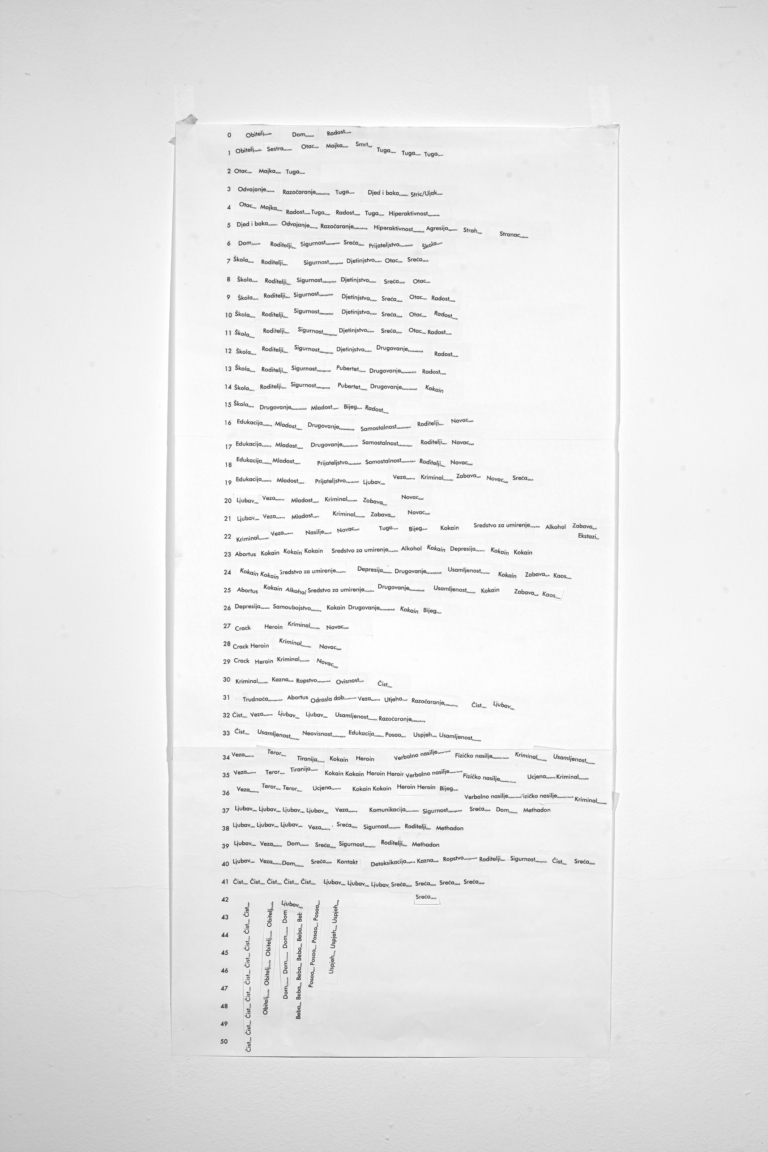 0 Obitelj__ Dom__ Radost__
1 Obitelj__ Sestra__ Otac__ Majka__ Smrt__ Tuga__ Tuga__ Tuga__
2 Otac__ Majka__ Tuga__
3 Odvajanje__ Razočaranje__ Tuga__ Djed i baka__ Stric/Ujak__
4 Otac__ Majka__ Radost__ Tuga__ Radost__ Tuga__ Hiperaktivnost__
5 Djed i baka__ Odvajanje__ Razočaranje__ Hiperaktivnost__ Agresija__ Strah__ Stranac__
6 Dom__ Roditelji__ Sigurnost__ Sreća__ Prijateljstvo__ Škola__
7 Škola__ Roditelji__ Sigurnost__ Djetinjstvo__ Otac__ Sreća__
8 Škola__ Roditelji__ Sigurnost__ Djetinjstvo__ Sreća__ Otac__
9 Škola__ Roditelji__ Sigurnost__ Djetinjstvo__ Sreća__ Otac__ Radost__
10 Škola__ Roditelji__ Sigurnost__ Djetinjstvo__ Sreća__ Otac__ Radost__
11 Škola__ Roditelji__ Sigurnost__ Djetinjstvo__ Sreća__ Otac__ Radost__
12 Škola__ Roditelji__ Sigurnost__ Djetinjstvo__ Drugovanje__ Radost__
13 Škola__ Roditelji__ Sigurnost__ Pubertet__ Drugovanje__ Radost__
14 Škola__ Roditelji__ Sigurnost__ Pubertet__ Drugovanje__ Kokain
15 Škola__ Drugovanje__ Mladost__ Bijeg__ Radost__
16 Edukacija__ Mladost__ Drugovanje__ Samostalnost__ Roditelji__ Novac__
17 Edukacija__ Mladost__ Drugovanje__ Samostalnost__ Roditelji__ Novac__
18 Edukacija__ Mladost__ Prijateljstvo__ Samostalnost__ Roditelji__ Novac__
19 Edukacija__ Mladost__ Prijateljstvo__ Ljubav__ Veza__ Kriminal__ Zabava__ Novac__ Sreća__
20 Ljubav__ Veza__ Mladost__ Kriminal__ Zabava__ Novac__
21 Ljubav__ Veza__ Mladost__ Kriminal__ Zabava__ Novac__
22 Kriminal__ Veza__ Nasilje__ Novac__ Tuga__ Bijeg__ Kokain Sredstvo za umirenje__ Alkohol Zabava__ Ekstazi__
23 Abortus Kokain Kokain Kokain Sredstvo za umirenje__ Alkohol Kokain Depresija__ Kokain Kokain
24 Kokain Kokain Sredstvo za umirenje__ Depresija__ Drugovanje__ Usamljenost__ Kokain Zabava__ Kaos__
25 Abortus Kokain Alkohol Sredstvo za umirenje__ Drugovanje__ Usamljenost__ Kokain Zabava__ Kaos__
26 Depresija__ Samoubojstvo__ Kokain Drugovanje__ Kokain Bijeg__
27 Crack Heroin Kriminal__ Novac__
28 Crack Heroin Kriminal__ Novac__
29 Crack Heroin Kriminal__ Novac__
30 Kriminal__ Kazna__ Ropstvo__ Ovisnost__ Čist__
31 Trudnoća__ Abortus Odrasla dob__ Veza__ Utjeha__ Razočaranje__ Čist__ Ljubav__
32 Čist__ Veza__ Ljubav__ Ljubav__ Usamljenost__ Razočaranje__
33 Čist__ Usamljenost__ Neovisnost__ Edukacija__ Posao__ Uspjeh__ Usamljenost__
34 Veza__ Teror__ Tiranija__ Kokain Heroin Verbalno nasilje__ Fizičko nasilje__ Kriminal__ Usamljenost__
35 Veza__ Teror__ Tiranija__ Kokain Kokain Heroin Heroin Verbalno nasilje__ Fizičko nasilje__ Ucjena__ Kriminal__
36 Veza__ Teror__ Teror__ Ucjena__ Kokain Kokain Heroin Heroin Bijeg__ Verbalno nasilje__ Fizičko nasilje__ Kriminal__
37 Ljubav__ Ljubav__ Ljubav__ Ljubav__ Veza__ Komunikacija__ Sigurnost__ Sreća__ Dom__ Methadon
38 Ljubav__ Ljubav__ Ljubav__ Veza__ Sreća__ Sigurnost__ Roditelji__ Methadon
39 Ljubav__ Veza__ Dom__ Sreća__ Sigurnost__ Roditelji__ Methadon
40 Ljubav__ Veza__ Dom__ Sreća__ Kontakt Detoksikacija__ Kazna__ Ropstvo__ Roditelji__ Sigurnost__ Čist__ Sreća__
41 Čist__ Čist__ Čist__ Čist__ Čist__ Ljubav__ Ljubav__ Ljubav__ Sreća__ Sreća__ Sreća__ Sreća__
42 Ljubav__ Sreća__
43
44
45
46
47
48
49
50
Čist__ Čist__ Čist__ Čist__ Čist__ Čist__ Čist__ Čist__
Obitelj__ Obitelj__ Obitelj__ Obitelj__
Dom__ Dom__ Dom__ Dom
Beba__ Beba__ Beba__ Beba__ Beba__ Beb
Posao__ Posao__ Posao__ Posao__
Uspjeh__ Uspjeh__ Uspjeh__